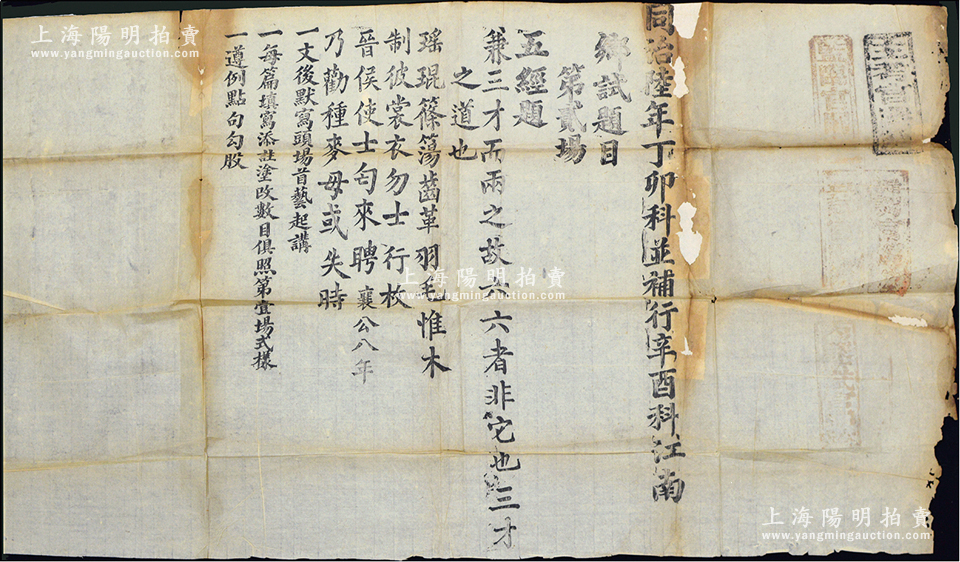 同治陸年丁卯科並補行辛酉科江南
鄉試題目
第貳場
五經題
兼三才而兩之故六六者非它也三才
之道也
瑶琨篠簜齒革羽毛惟木
制彼裳衣勿士行枚
晉侯使士匄來聘 襄公八年
乃勸種麥毋或失時
一文後默寫頭場首藝起講
一每篇填寫添註塗改數目俱照第壹場式樣
一遵例點句勾股
上海陽明拍賣
www.yangmingauction.com
上海陽明拍賣
www.yangmingauction.com
上海陽明拍賣
www.yangmingauction.com